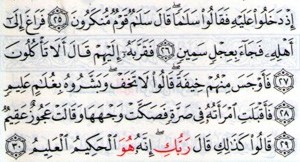 إِذْ دَخَلُوا۟ عَلَيْهِ فَقَالُوا۟ سَلَٰمًا ۖ قَالَ سَلَٰمٌ قَوْمٌ مُّنكَرُونَ ٢٥ فَرَاغَ إِلَىٰٓ
أَهْلِهِۦ فَجَآءَ بِعِجْلٍ سَمِينٍ ٢٦ فَقَرَّبَهُۥٓ إِلَيْهِمْ قَالَ أَلَا تَأْكُلُونَ
٢٧ فَأَوْجَسَ مِنْهُمْ خِيفَةً ۖ قَالُوا۟ لَا تَخَفْ ۖ وَبَشَّرُوهُ بِغُلَٰمٍ عَلِيمٍ
٢٨ فَأَقْبَلَتِ ٱمْرَأَتُهُۥ فِى صَرَّةٍ فَصَكَّتْ وَجْهَهَا وَقَالَتْ عَجُوزٌ عَقِيمٌ
٢٩ قَالُوا۟ كَذَٰلِكِ قَالَ رَبُّكِ ۖ إِنَّهُۥ هُوَ ٱلْحَكِيمُ ٱلْعَلِيمُ ٣٠